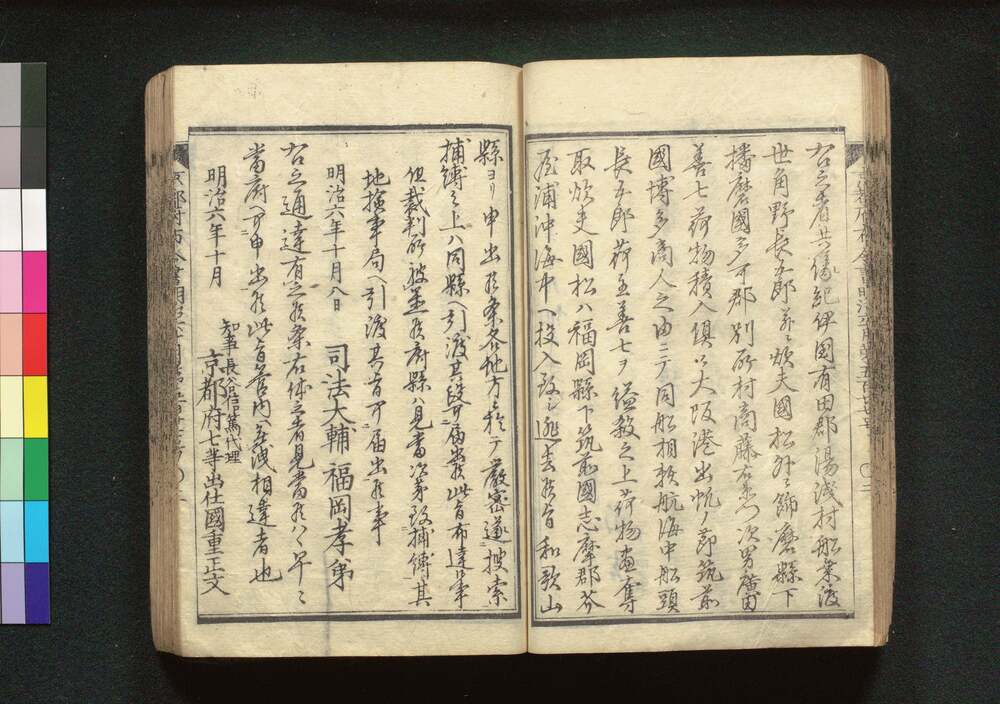 右之者共儀紀伊国有田郡湯浅村船業渡
世角野長五郎并ニ炊夫國松外ニ飾磨縣下
播磨國多可郡別所村商藤右衛門次男廣田
善七荷物積入俱ニ大阪港出帆ノ節筑前
國博多商人之由ニテ同船相頼航海中船頭
長五郎荷主善七ヲ縊殺之上荷物盡奪
取炊夫國松ハ福岡縣下筑前國志摩郡芥
屋浦沖海中ヘ投入致シ逃去候旨和歌山
縣ヨリ申出候条各地方ニ於テ嚴密遂搜索
捕縛之上ハ同縣ヘ引渡其段可届出候此旨布達候事
但裁判所被置候府縣ハ見當次第致捕縛其
地檢事局ヘ引渡其旨可届出候事
明治六年十月八日 司法大輔福岡孝弟
右之通達有之候条右体之者見當候ハヽ早々
當府ヘ可申出候此旨管内ヘ無洩相達者也
明治六年十月
知事長谷信篤代理
京都府七等出仕國重正文